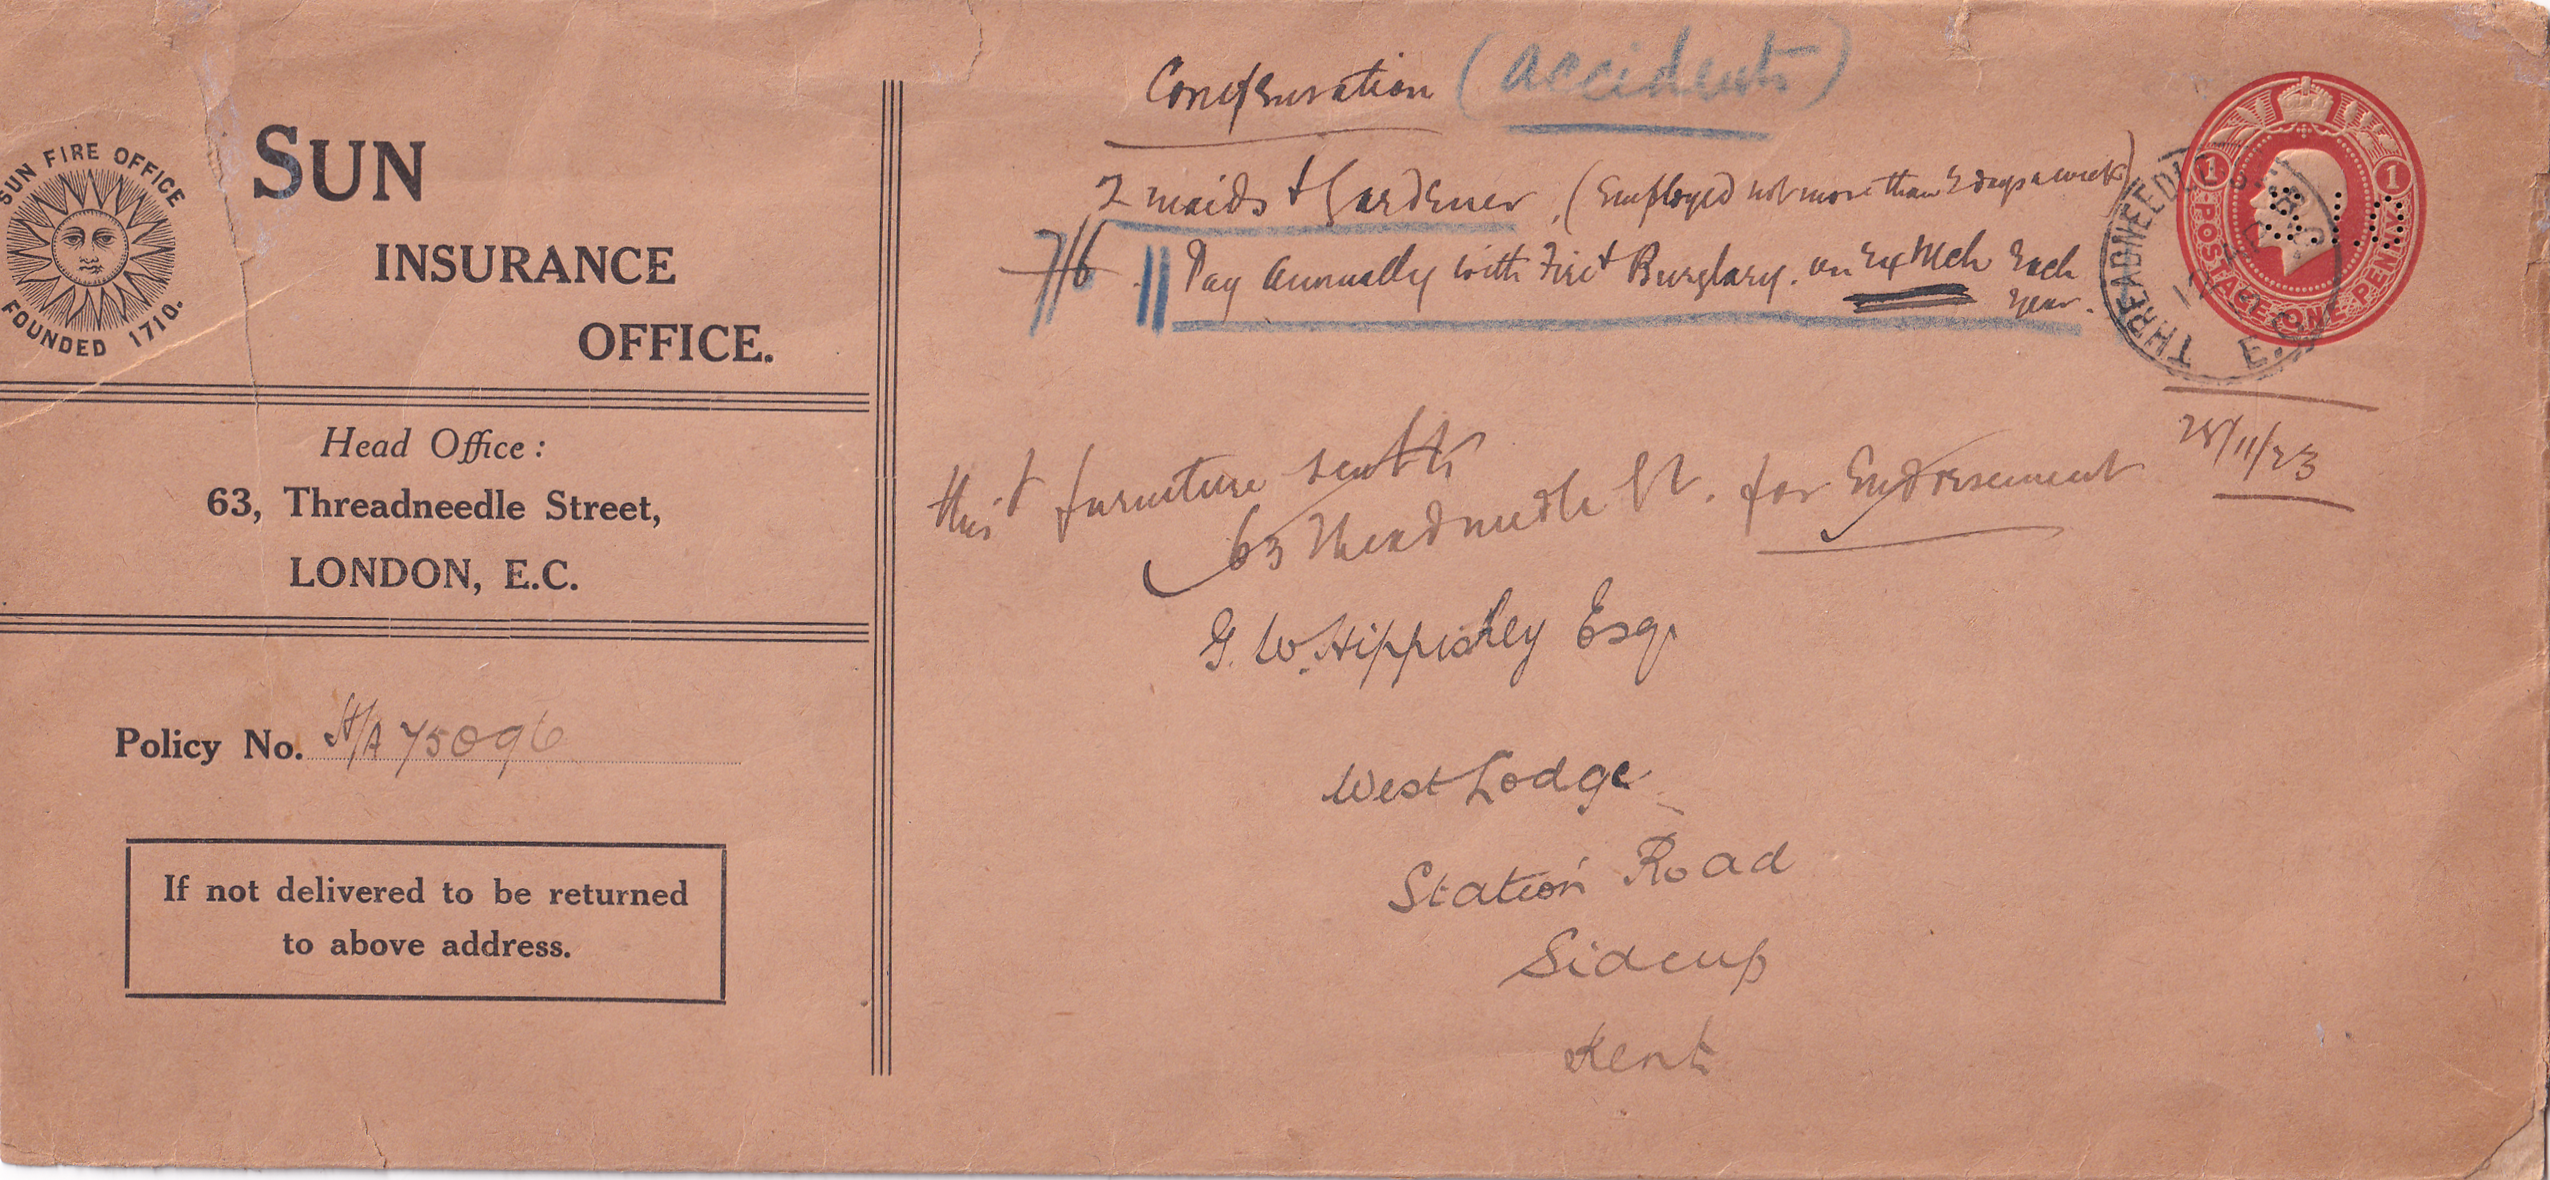 SUN FIRE OFFICE
FOUNDED 1710.
SUN
INSURANCE
OFFICE.
Head Office:
63, Threadneedle Street,
LONDON, E.C.
Policy No. H/A 75096
If not delivered to be returned
to above address.
(Accidents)
2 maids & Gardener. (Employed not more than 2 days a week)
7/6 || Pay annually with Fire & Burglary. on Each
year.
POSTAGE ONE PENNY
1 1
S.I.O
THREADNEEDLE ST. E.C.
28/11/23
this & furniture sent to
63 Threadneedle St. for Endorsement
G. W. Hippisley Esq.
West Lodge
Station Road
Sidcup
Kent